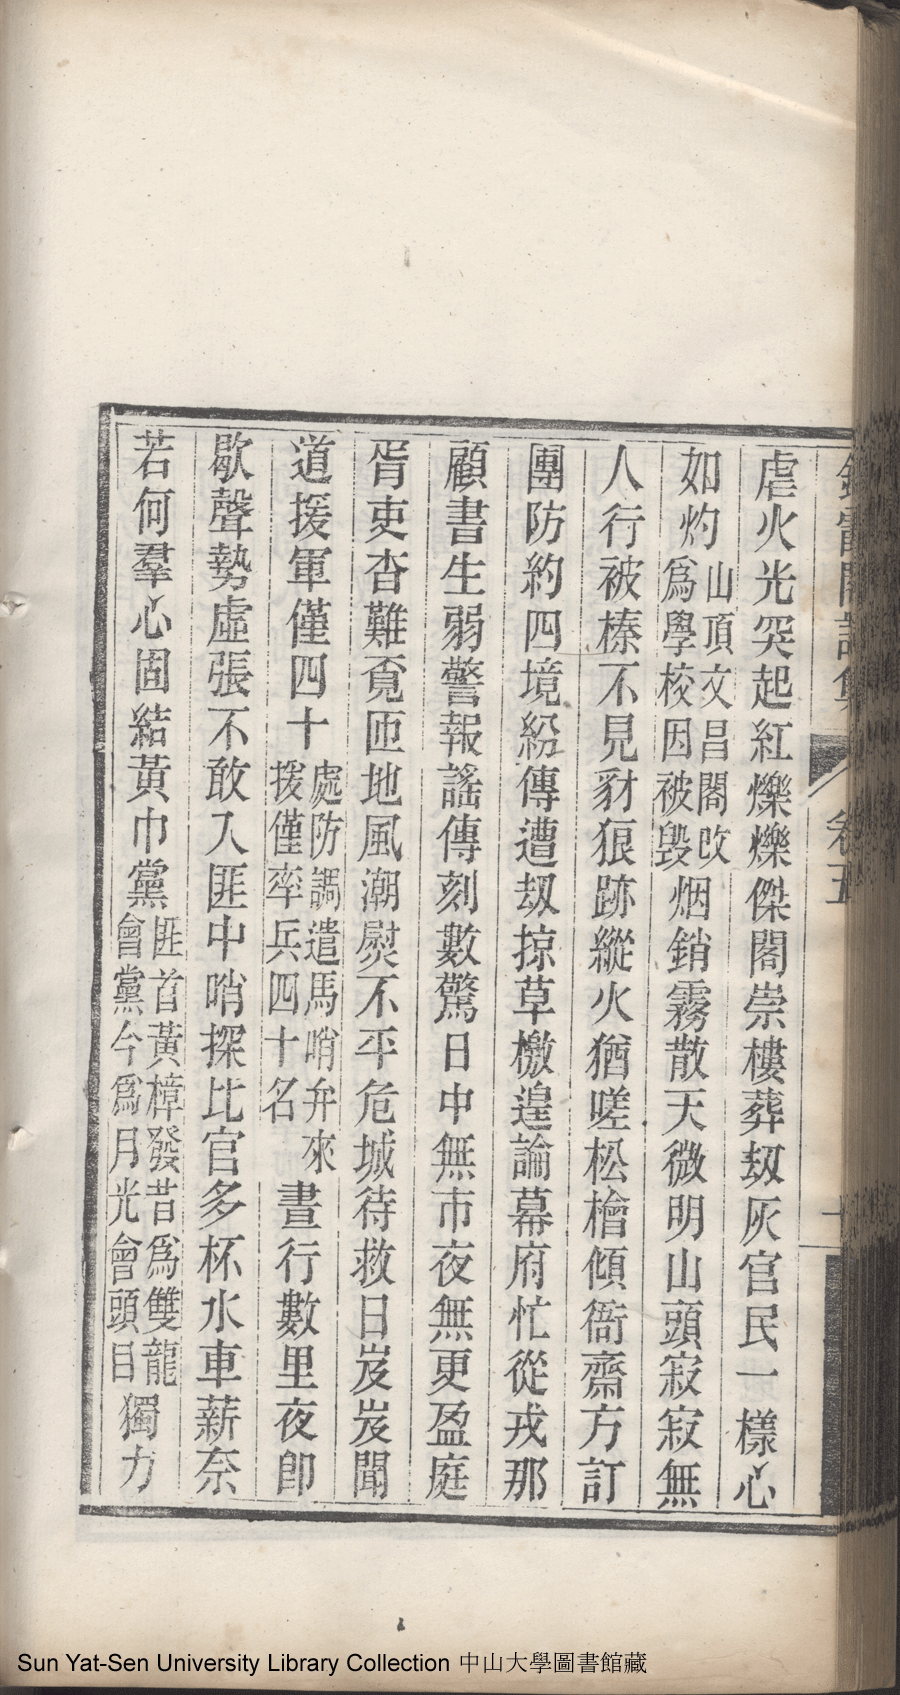 虐火光突起紅爍爍傑閣崇樓葬刼灰官民一樣心
如灼山頂文昌閣改爲學校因被毀烟銷霧散天微明山頭寂寂無
人行被榛不見豺狼跡縱火猶嗟松檜傾衙齋方訂
團防約四境紛傳遭刼掠草檄遑論幕府忙從戎那
顧書生弱警報謠傳刻數驚日中無市夜無更盈庭
胥吏杳難覔匝地風潮熨不平危城待救日岌岌聞
道援軍僅四十處防調遣馬哨弁來援僅率兵四十名晝行數里夜卽
歇聲勢虛張不敢入匪中哨探比官多杯水車薪奈
若何羣心固結黃巾黨匪首黃樟發昔爲雙龍會黨今爲月光會頭目獨力
卷五
Sun Yat-Sen University Library Collection 中山大學圖書館藏